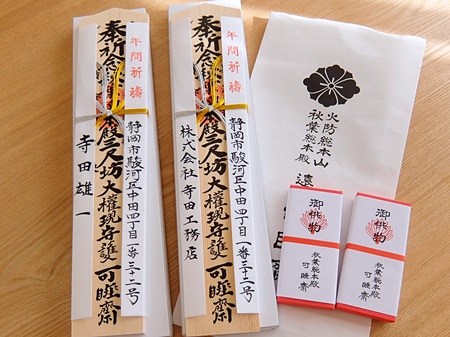 年間祈祷
静岡市駿河区中田四丁目一番三十二号
奉祈念
本殿三尺坊大権現守護 可睡齋
寺田雄一
年間祈祷
静岡市駿河区中田四丁目一番三十二号
奉祈念
本殿三尺坊大権現守護 可睡齋
株式会社 寺田工務店
火防総本山
秋葉総本殿
遠
御供物
秋葉総本殿
可睡斎
御供物
秋葉総本殿
可睡斎